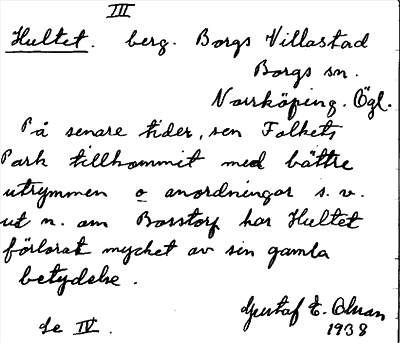 III
Hultet. berg. Borgs Villastad
Borgs sn.
Norrköping. Ögl.
På senare tider, sen Folkets
Park tillkommit med bättre
utrymmen o anordningar s. v.
ut n. om Borstorp har Hultet
förlorat mycket av sin gamla
betydelse.
Gustaf E.
1938
Se IV.